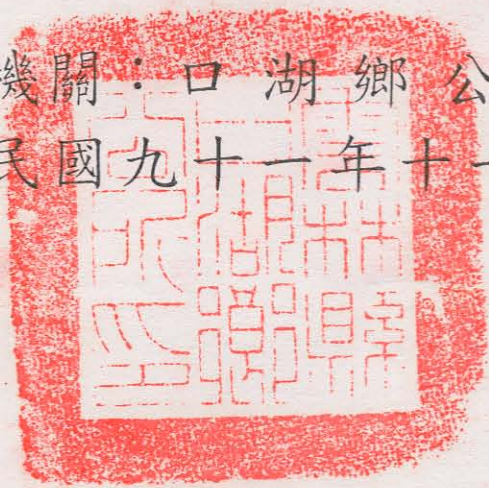 機關：口湖鄉公
民國九十一年十一
雲林縣
口湖鄉
公所印